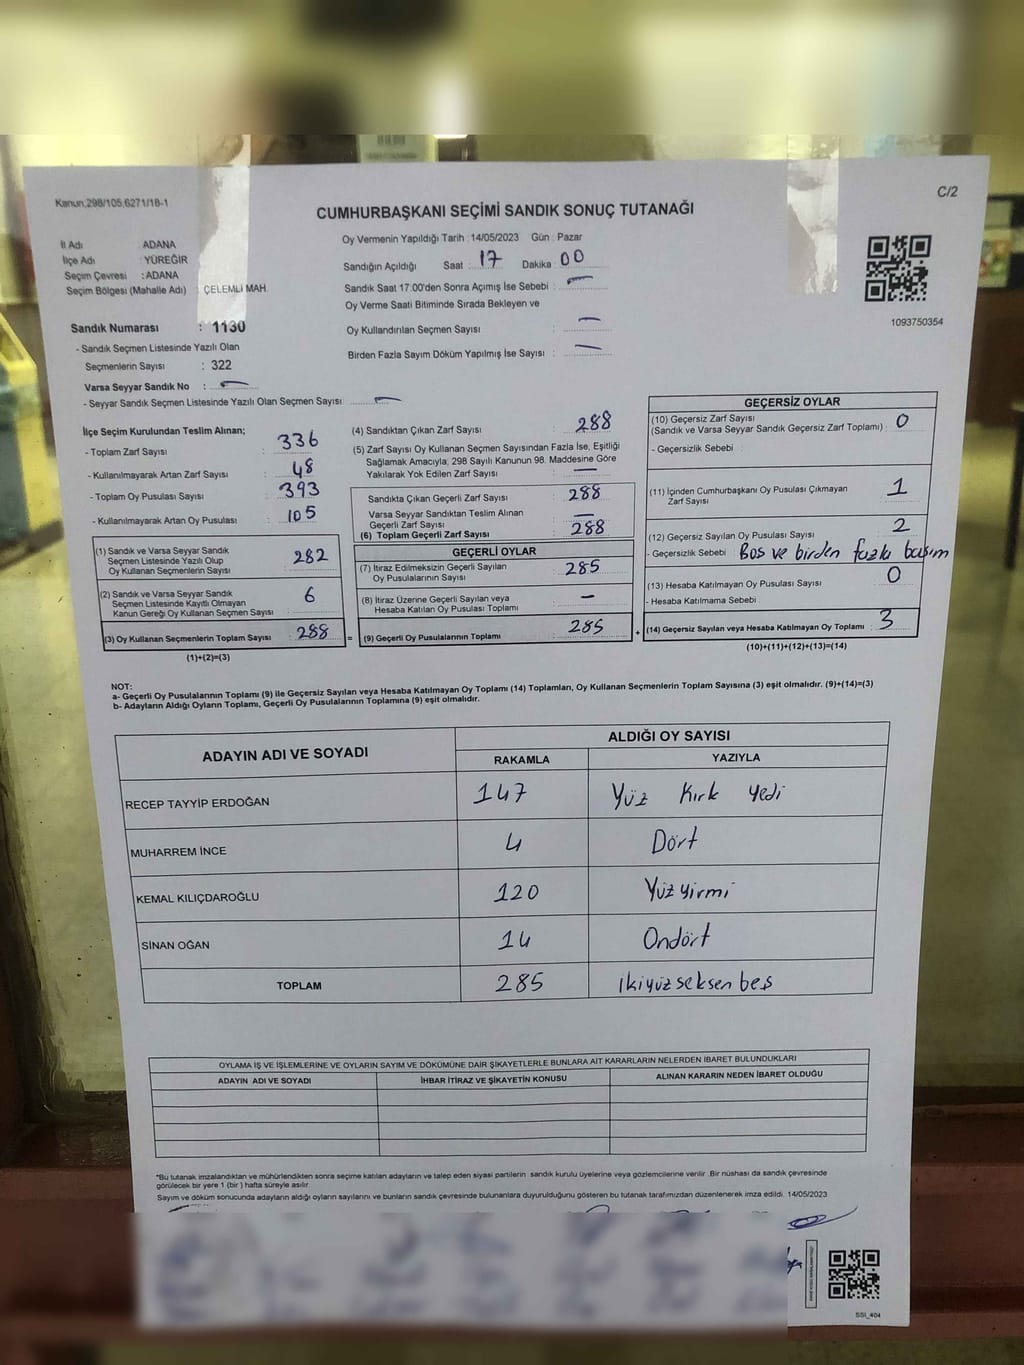 Kanun,298/105,6271/18-1
C/2
CUMHURBAŞKANI SEÇİMİ SANDIK SONUÇ TUTANAĞI
İl Adı : ADANA
İlçe Adı : YÜREĞİR
Seçim Çevresi : ADANA
Seçim Bölgesi (Mahalle Adı) : ÇELEMLİ MAH.
Sandık Numarası : 1130
- Sandık Seçmen Listesinde Yazılı Olan
Seçmenlerin Sayısı : 322
Varsa Seyyar Sandık No : —
- Seyyar Sandık Seçmen Listesinde Yazılı Olan Seçmen Sayısı : —
Oy Vermenin Yapıldığı Tarih : 14/05/2023 Gün : Pazar
Sandığın Açıldığı Saat : 17 Dakika : 00
Sandık Saat 17:00'den Sonra Açımış İse Sebebi : —
Oy Verme Saati Bitiminde Sırada Bekleyen ve
Oy Kullandırılan Seçmen Sayısı : —
Birden Fazla Sayım Döküm Yapılmış İse Sayısı : —
1093750354
İlçe Seçim Kurulundan Teslim Alınan;
- Toplam Zarf Sayısı : 336
- Kullanılmayarak Artan Zarf Sayısı : 48
- Toplam Oy Pusulası Sayısı : 393
- Kullanılmayarak Artan Oy Pusulası : 105
(1) Sandık ve Varsa Seyyar Sandık
Seçmen Listesinde Yazılı Olup
Oy Kullanan Seçmenlerin Sayısı : 282
(2) Sandık ve Varsa Seyyar Sandık
Seçmen Listesinde Kayıtlı Olmayan
Kanun Gereği Oy Kullanan Seçmen Sayısı : 6
(3) Oy Kullanan Seçmenlerin Toplam Sayısı : 288 =
(1)+(2)=(3)
(4) Sandıktan Çıkan Zarf Sayısı : 288
(5) Zarf Sayısı Oy Kullanan Seçmen Sayısından Fazla İse, Eşitliği
Sağlamak Amacıyla, 298 Sayılı Kanunun 98. Maddesine Göre
Yakılarak Yok Edilen Zarf Sayısı : —
Sandıkta Çıkan Geçerli Zarf Sayısı : 288
Varsa Seyyar Sandıktan Teslim Alınan
Geçerli Zarf Sayısı : —
(6) Toplam Geçerli Zarf Sayısı : 288
GEÇERLİ OYLAR
(7) İtiraz Edilmeksizin Geçerli Sayılan
Oy Pusulalarının Sayısı : 285
(8) İtiraz Üzerine Geçerli Sayılan veya
Hesaba Katılan Oy Pusulası Toplamı : —
(9) Geçerli Oy Pusulalarının Toplamı : 285 +
GEÇERSİZ OYLAR
(10) Geçersiz Zarf Sayısı
(Sandık ve Varsa Seyyar Sandık Geçersiz Zarf Toplamı) : 0
- Geçersizlik Sebebi :
(11) İçinden Cumhurbaşkanı Oy Pusulası Çıkmayan
Zarf Sayısı : 1
(12) Geçersiz Sayılan Oy Pusulası Sayısı : 2
- Geçersizlik Sebebi : Bos ve birden fazla basım
(13) Hesaba Katılmayan Oy Pusulası Sayısı : 0
- Hesaba Katılmama Sebebi :
(14) Geçersiz Sayılan veya Hesaba Katılmayan Oy Toplamı : 3
(10)+(11)+(12)+(13)=(14)
NOT:
a- Geçerli Oy Pusulalarının Toplamı (9) ile Geçersiz Sayılan veya Hesaba Katılmayan Oy Toplamı (14) Toplamları, Oy Kullanan Seçmenlerin Toplam Sayısına (3) eşit olmalıdır. (9)+(14)=(3)
b- Adayların Aldığı Oyların Toplamı, Geçerli Oy Pusulalarının Toplamına (9) eşit olmalıdır.
ADAYIN ADI VE SOYADI ALDIĞI OY SAYISI
RAKAMLA YAZIYLA
RECEP TAYYİP ERDOĞAN 147 Yüz Kırk yedi
MUHARREM İNCE 4 Dört
KEMAL KILIÇDAROĞLU 120 Yüzyirmi
SİNAN OĞAN 14 Ondört
TOPLAM 285 ikiyüzseksenbeş
OYLAMA İŞ VE İŞLEMLERİNE VE OYLARIN SAYIM VE DÖKÜMÜNE DAİR ŞİKAYETLERLE BUNLARA AİT KARARLARIN NELERDEN İBARET BULUNDUKLARI
ADAYIN ADI VE SOYADI İHBAR İTİRAZ VE ŞİKAYETİN KONUSU ALINAN KARARIN NEDEN İBARET OLDUĞU
*Bu tutanak imzalandıktan ve mühürlendikten sonra seçime katılan adayların ve talep eden siyasi partilerin sandık kurulu üyelerine veya gözlemcilerine verilir. Bir nüshası da sandık çevresinde
görülecek bir yere 1 (bir) hafta süreyle asılır.
Sayım ve döküm sonucunda adayların aldığı oyların sayılarını ve bunların sandık çevresinde bulunanlara duyurulduğunu gösteren bu tutanak tarafımızdan düzenlenerek imza edildi. 14/05/2023
SSI_404